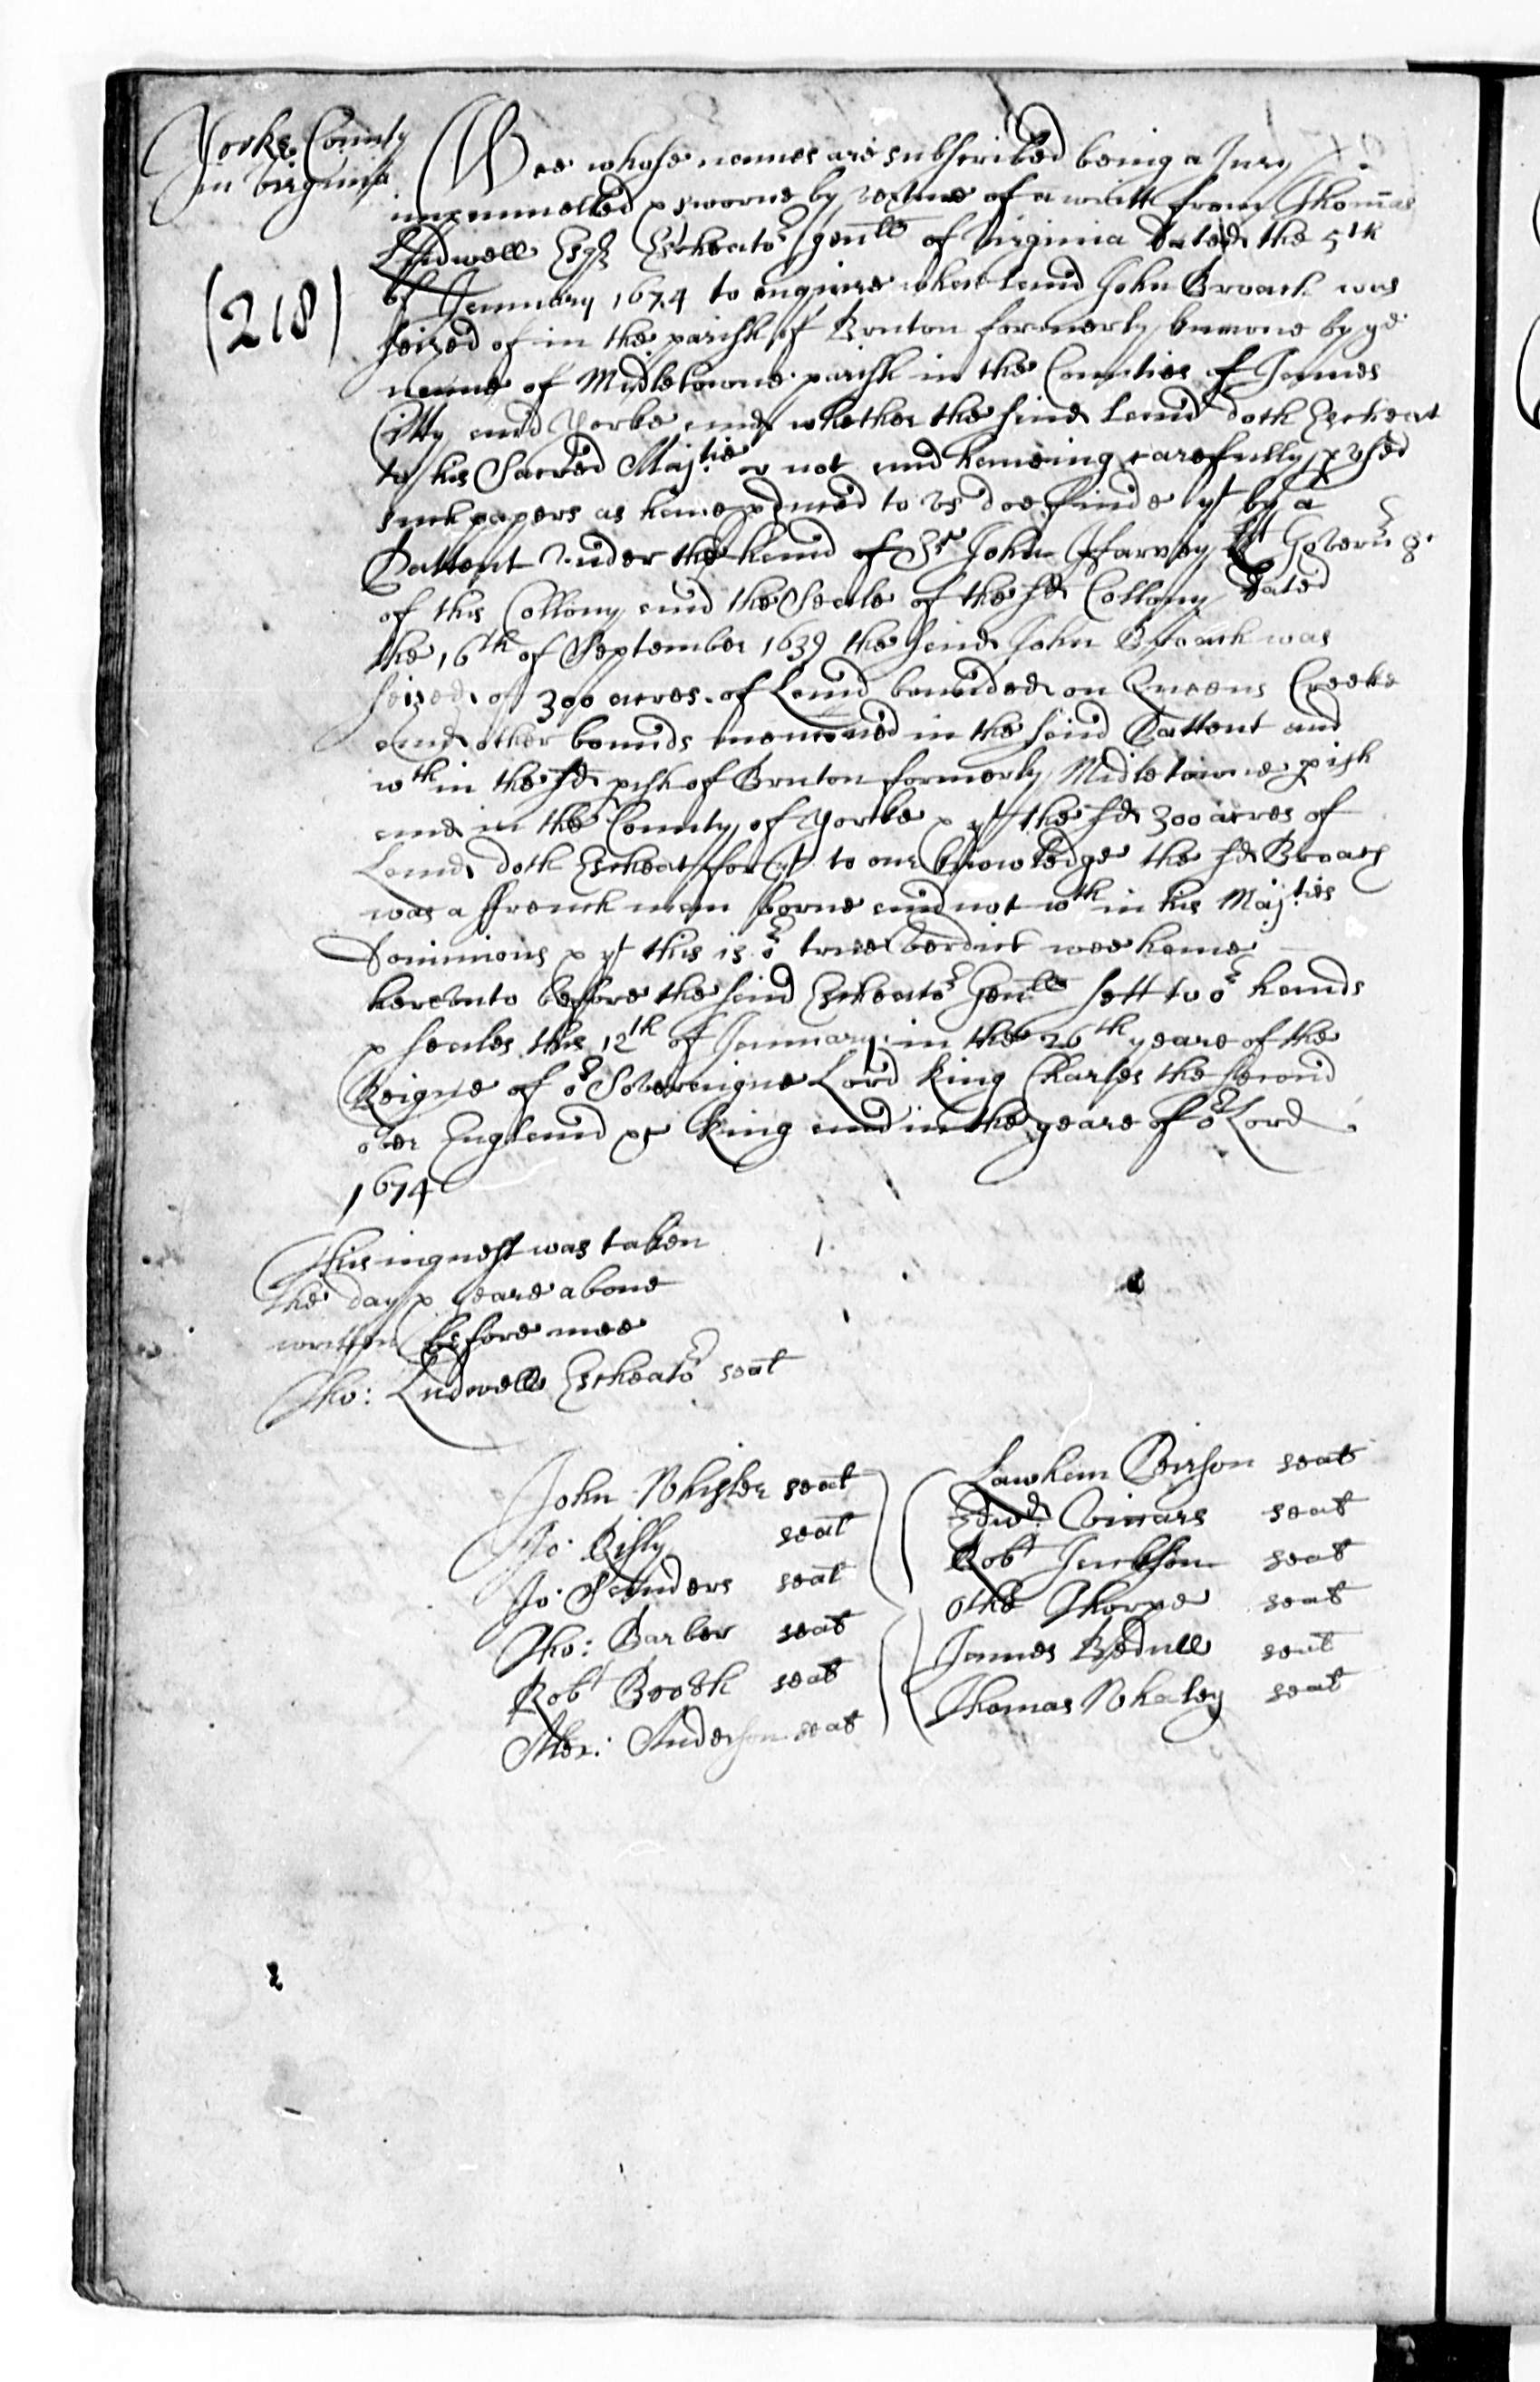 Yorke County
in Virginia
(218)
Wee whose names are subscribed being a Jury
impannelled & sworne by vertue of a writt from Thomas
Ludwell Esqr Escheator Genll of Virginia dated the 5th
of January 1674 to enquire what land John Broach was
seized of in the parish of Bruton formerly knowne by ye
name of Midletowne parish in the Counties of James
Citty and Yorke and whether the said land doth Escheat
to his Sacred Majtie or not and haveing carefully pvsed
such papers as have pduced to vs doe finde yt by a
Pattent vnder the hand of Sr John Harvey Kt Govern
of this Collony and the Seale of the sd Collony dated
the 16th of September 1639 the said John Broach was
seized of 300 acres of Land bounded on Queens Creeke
and other bounds menconed in the said Pattent and
wthin the sd pish of Bruton formerly Midletowne pish
and in the County of Yorke & yt the sd 300 acres of
Land doth Escheat for yt to our knowledge the sd Broach
was a ffrench man borne and not wthin his Majties
Dominions & yt this is or true verdict wee have
herevnto before the said Escheator Genll sett to or hands
& seales this 12th of January in the 26th yeare of the
Reigne of or Soveraigne Lord King Charles the second
over England &c King and in the yeare of or Lord
1674
This inquest was taken
the day & yeare above
written before mee
Tho: Ludwell Escheator seal
John Whisler seal
Jo: Risly seal
Jo: Sanders seal
Tho: Barber seal
Robt Booth seal
Alex: Anderson seal
Lawham Peirson seal
Edwd: Vinars seal
Robt Jackson seal
Otho Thorpe seal
James Bednell seal
Thomas Whaley seal